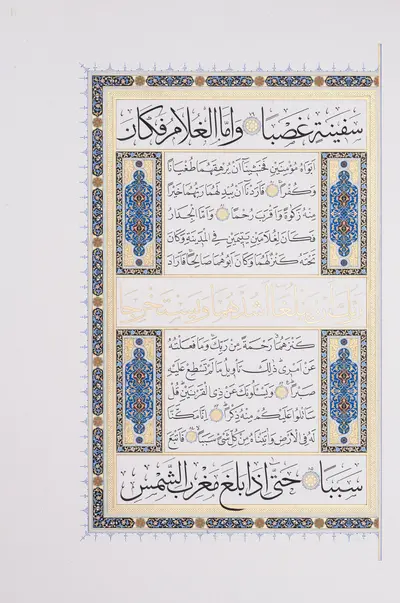 سفينة غصبا وأما الغلام فكان
أبواه مؤمنين فخشينا أن يرهقهما طغيانا
وكفرا فأردنا أن يبدلهما ربهما خيرا
منه زكوة وأقرب رحما وأما الجدار
فكان لغلامين يتيمين في المدينة وكان
تحته كنز لهما وكان أبوهما صالحا فأراد
ربك أن يبلغا أشدهما ويستخرجا
كنزهما رحمة من ربك وما فعلته
عن أمري ذلك تأويل ما لم تسطع عليه
صبرا ويسألونك عن ذي القرنين قل
سأتلوا عليكم منه ذكرا إنا مكنا
له في الأرض وآتيناه من كل شيء سببا فأتبع
سببا حتى إذا بلغ مغرب الشمس